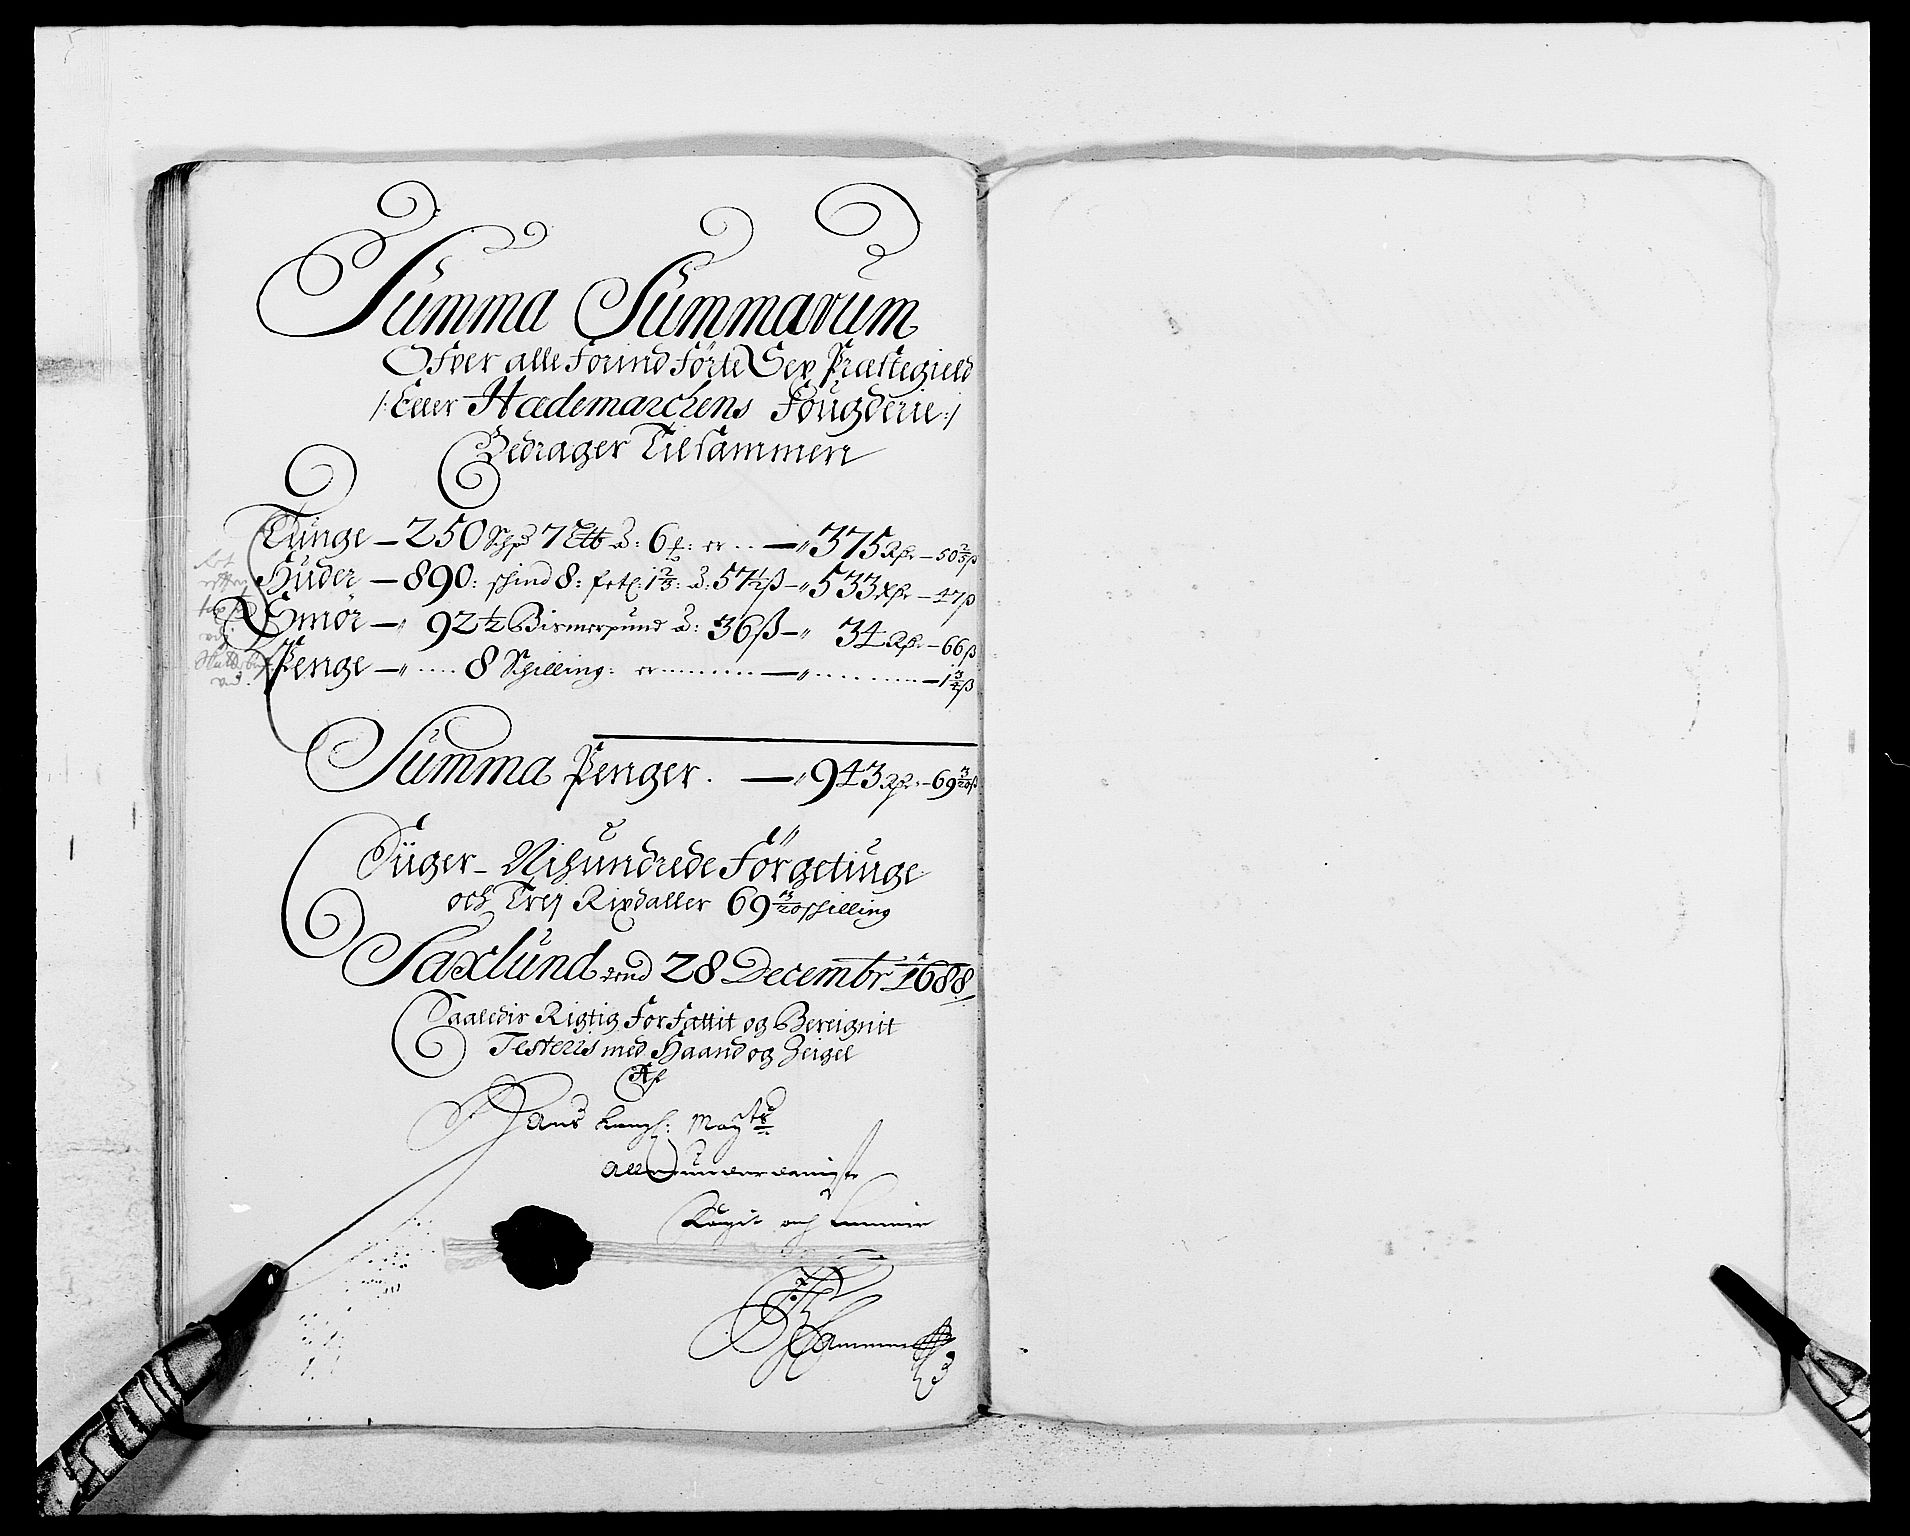 Summa Summarum
Ofver alle forindførte Sex Præstegield
/: Eller Hædemarchens Fougderie :/
Bedrager Tilsammen
Tunge – 250 Schp 7 Ltb à: 6 f: er .. – " 375 Rdr – 50 2/5 ß
Huder – 890: schind 8: fetl: 1 2/3: à: 57 1/2 ß – " 533 Rdr – 47 ß
Smør – " 92 1/2 Bismerpund à: 36 ß – " 34 Rdr – 66 ß
Penge – " ..... 8 Schilling: er ......... – " ......... – 1 3/4 ß
Summa Penger. – " 943 Rdr – 69 3/20 ß
Siiger – Nihundrede Førgetiuge
och Trej Rixdaller 69 3/20 schilling
Saxlund dend 28 Decembr 1688
Saaledis Rigtig forfattit og Bereignit
Testeris med Haand og Zeigel
Af
Hans Kongl: Mayts
Allerunderdanigste
Fogit och